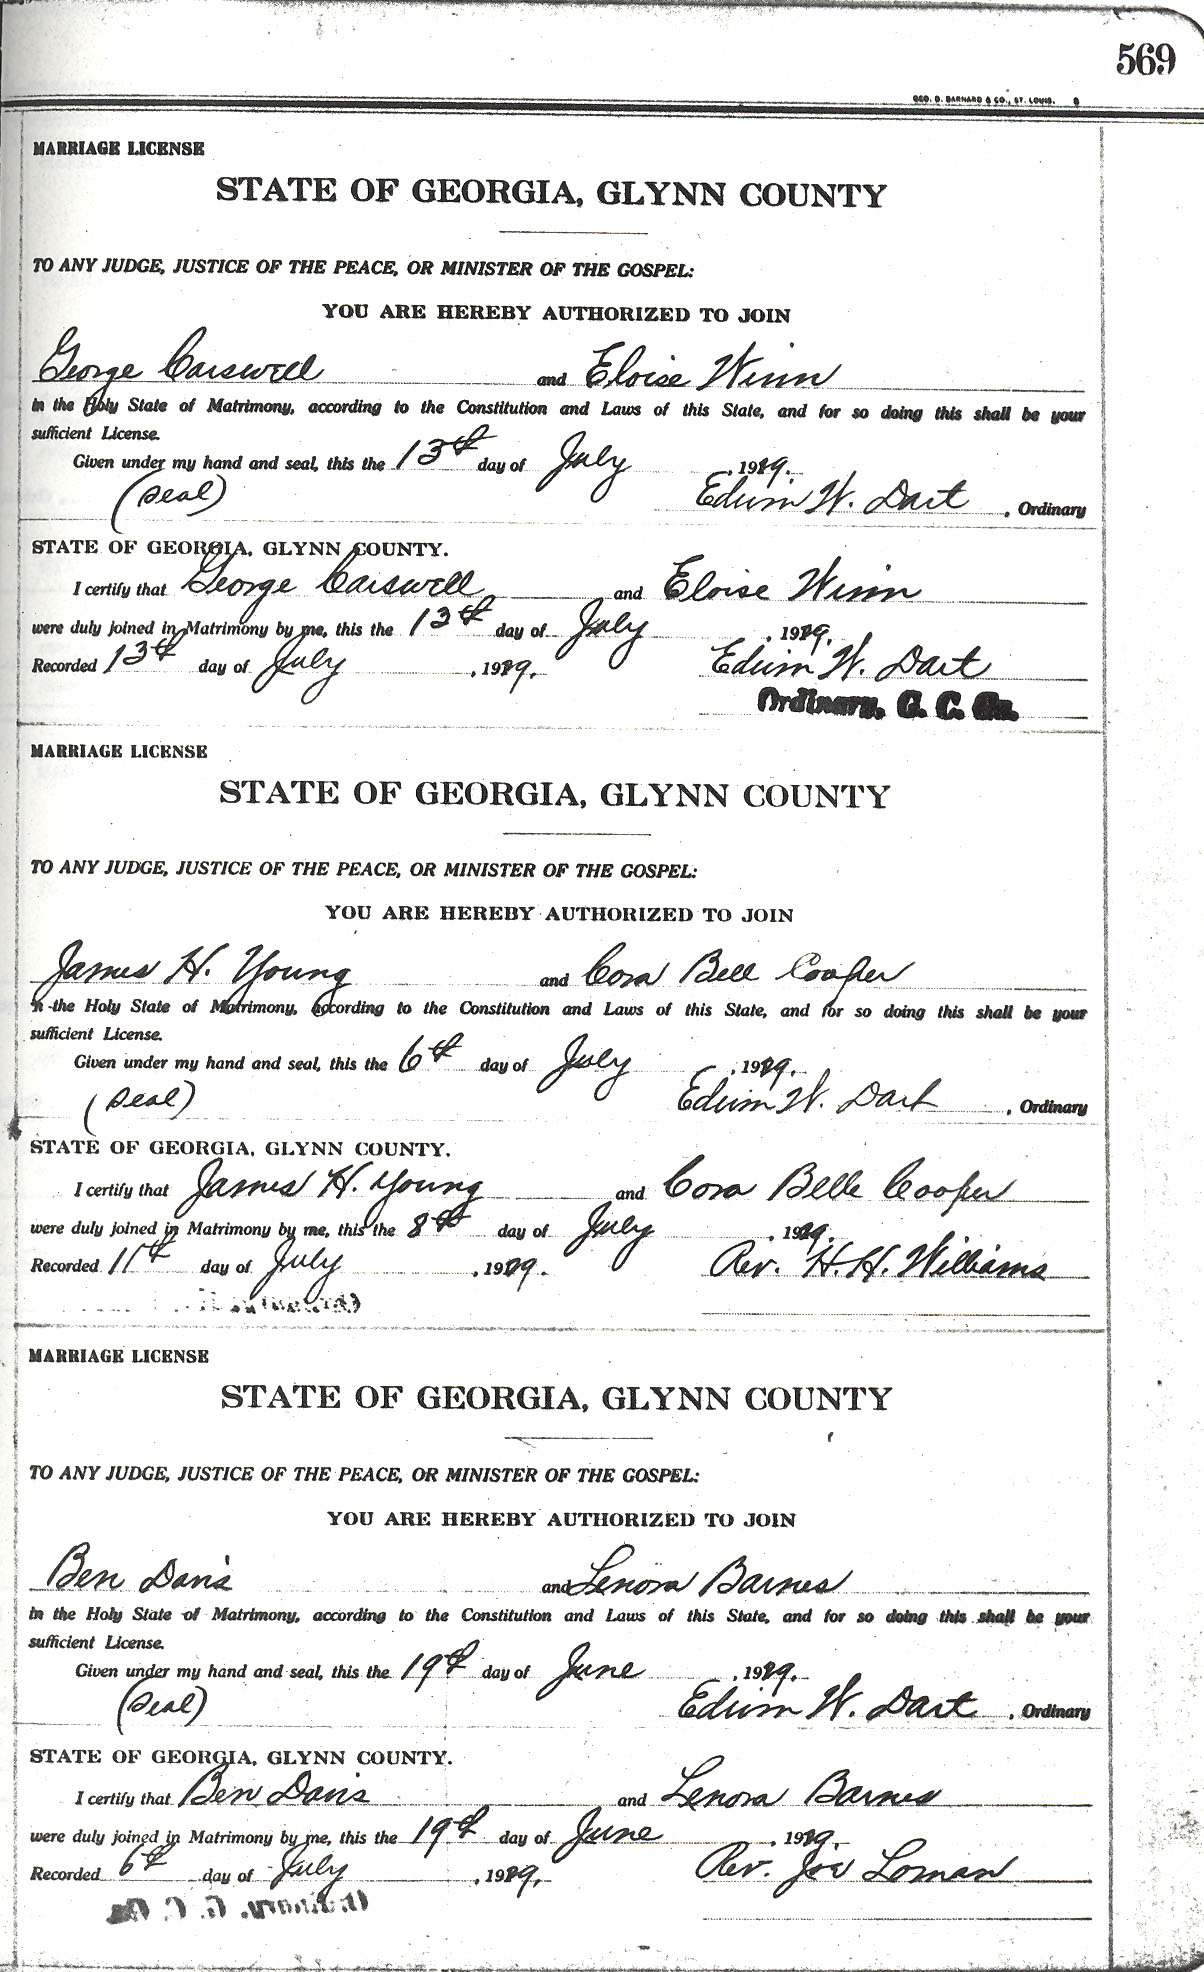 569
GEO. D. BARNARD & CO., ST. LOUIS.
MARRIAGE LICENSE
STATE OF GEORGIA, GLYNN COUNTY
TO ANY JUDGE, JUSTICE OF THE PEACE, OR MINISTER OF THE GOSPEL:
YOU ARE HEREBY AUTHORIZED TO JOIN
George Carswell and Eloise Winn
in the Holy State of Matrimony, according to the Constitution and Laws of this State, and for so doing this shall be your
sufficient License.
Given under my hand and seal, this the 13th day of July, 1929.
(Seal) Edwin W. Dart, Ordinary
STATE OF GEORGIA, GLYNN COUNTY.
I certify that George Carswell and Eloise Winn
were duly joined in Matrimony by me, this the 13th day of July, 1929.
Recorded 13th day of July, 1929. Edwin W. Dart
Ordinary, G. C. Ga.
MARRIAGE LICENSE
STATE OF GEORGIA, GLYNN COUNTY
TO ANY JUDGE, JUSTICE OF THE PEACE, OR MINISTER OF THE GOSPEL:
YOU ARE HEREBY AUTHORIZED TO JOIN
James H. Young and Cora Bell Cooper
in the Holy State of Matrimony, according to the Constitution and Laws of this State, and for so doing this shall be your
sufficient License.
Given under my hand and seal, this the 6th day of July, 1929.
(Seal) Edwin W. Dart, Ordinary
STATE OF GEORGIA, GLYNN COUNTY.
I certify that James H. Young and Cora Belle Cooper
were duly joined in Matrimony by me, this the 8th day of July, 1929.
Recorded 11th day of July, 1929. Rev. H. H. Williams
MARRIAGE LICENSE
STATE OF GEORGIA, GLYNN COUNTY
TO ANY JUDGE, JUSTICE OF THE PEACE, OR MINISTER OF THE GOSPEL:
YOU ARE HEREBY AUTHORIZED TO JOIN
Ben Davis and Lenora Barnes
in the Holy State of Matrimony, according to the Constitution and Laws of this State, and for so doing this shall be your
sufficient License.
Given under my hand and seal, this the 19th day of June, 1929.
(Seal) Edwin W. Dart, Ordinary
STATE OF GEORGIA, GLYNN COUNTY.
I certify that Ben Davis and Lenora Barnes
were duly joined in Matrimony by me, this the 19th day of June, 1929.
Recorded 6th day of July, 1929. Rev. Joe Loman